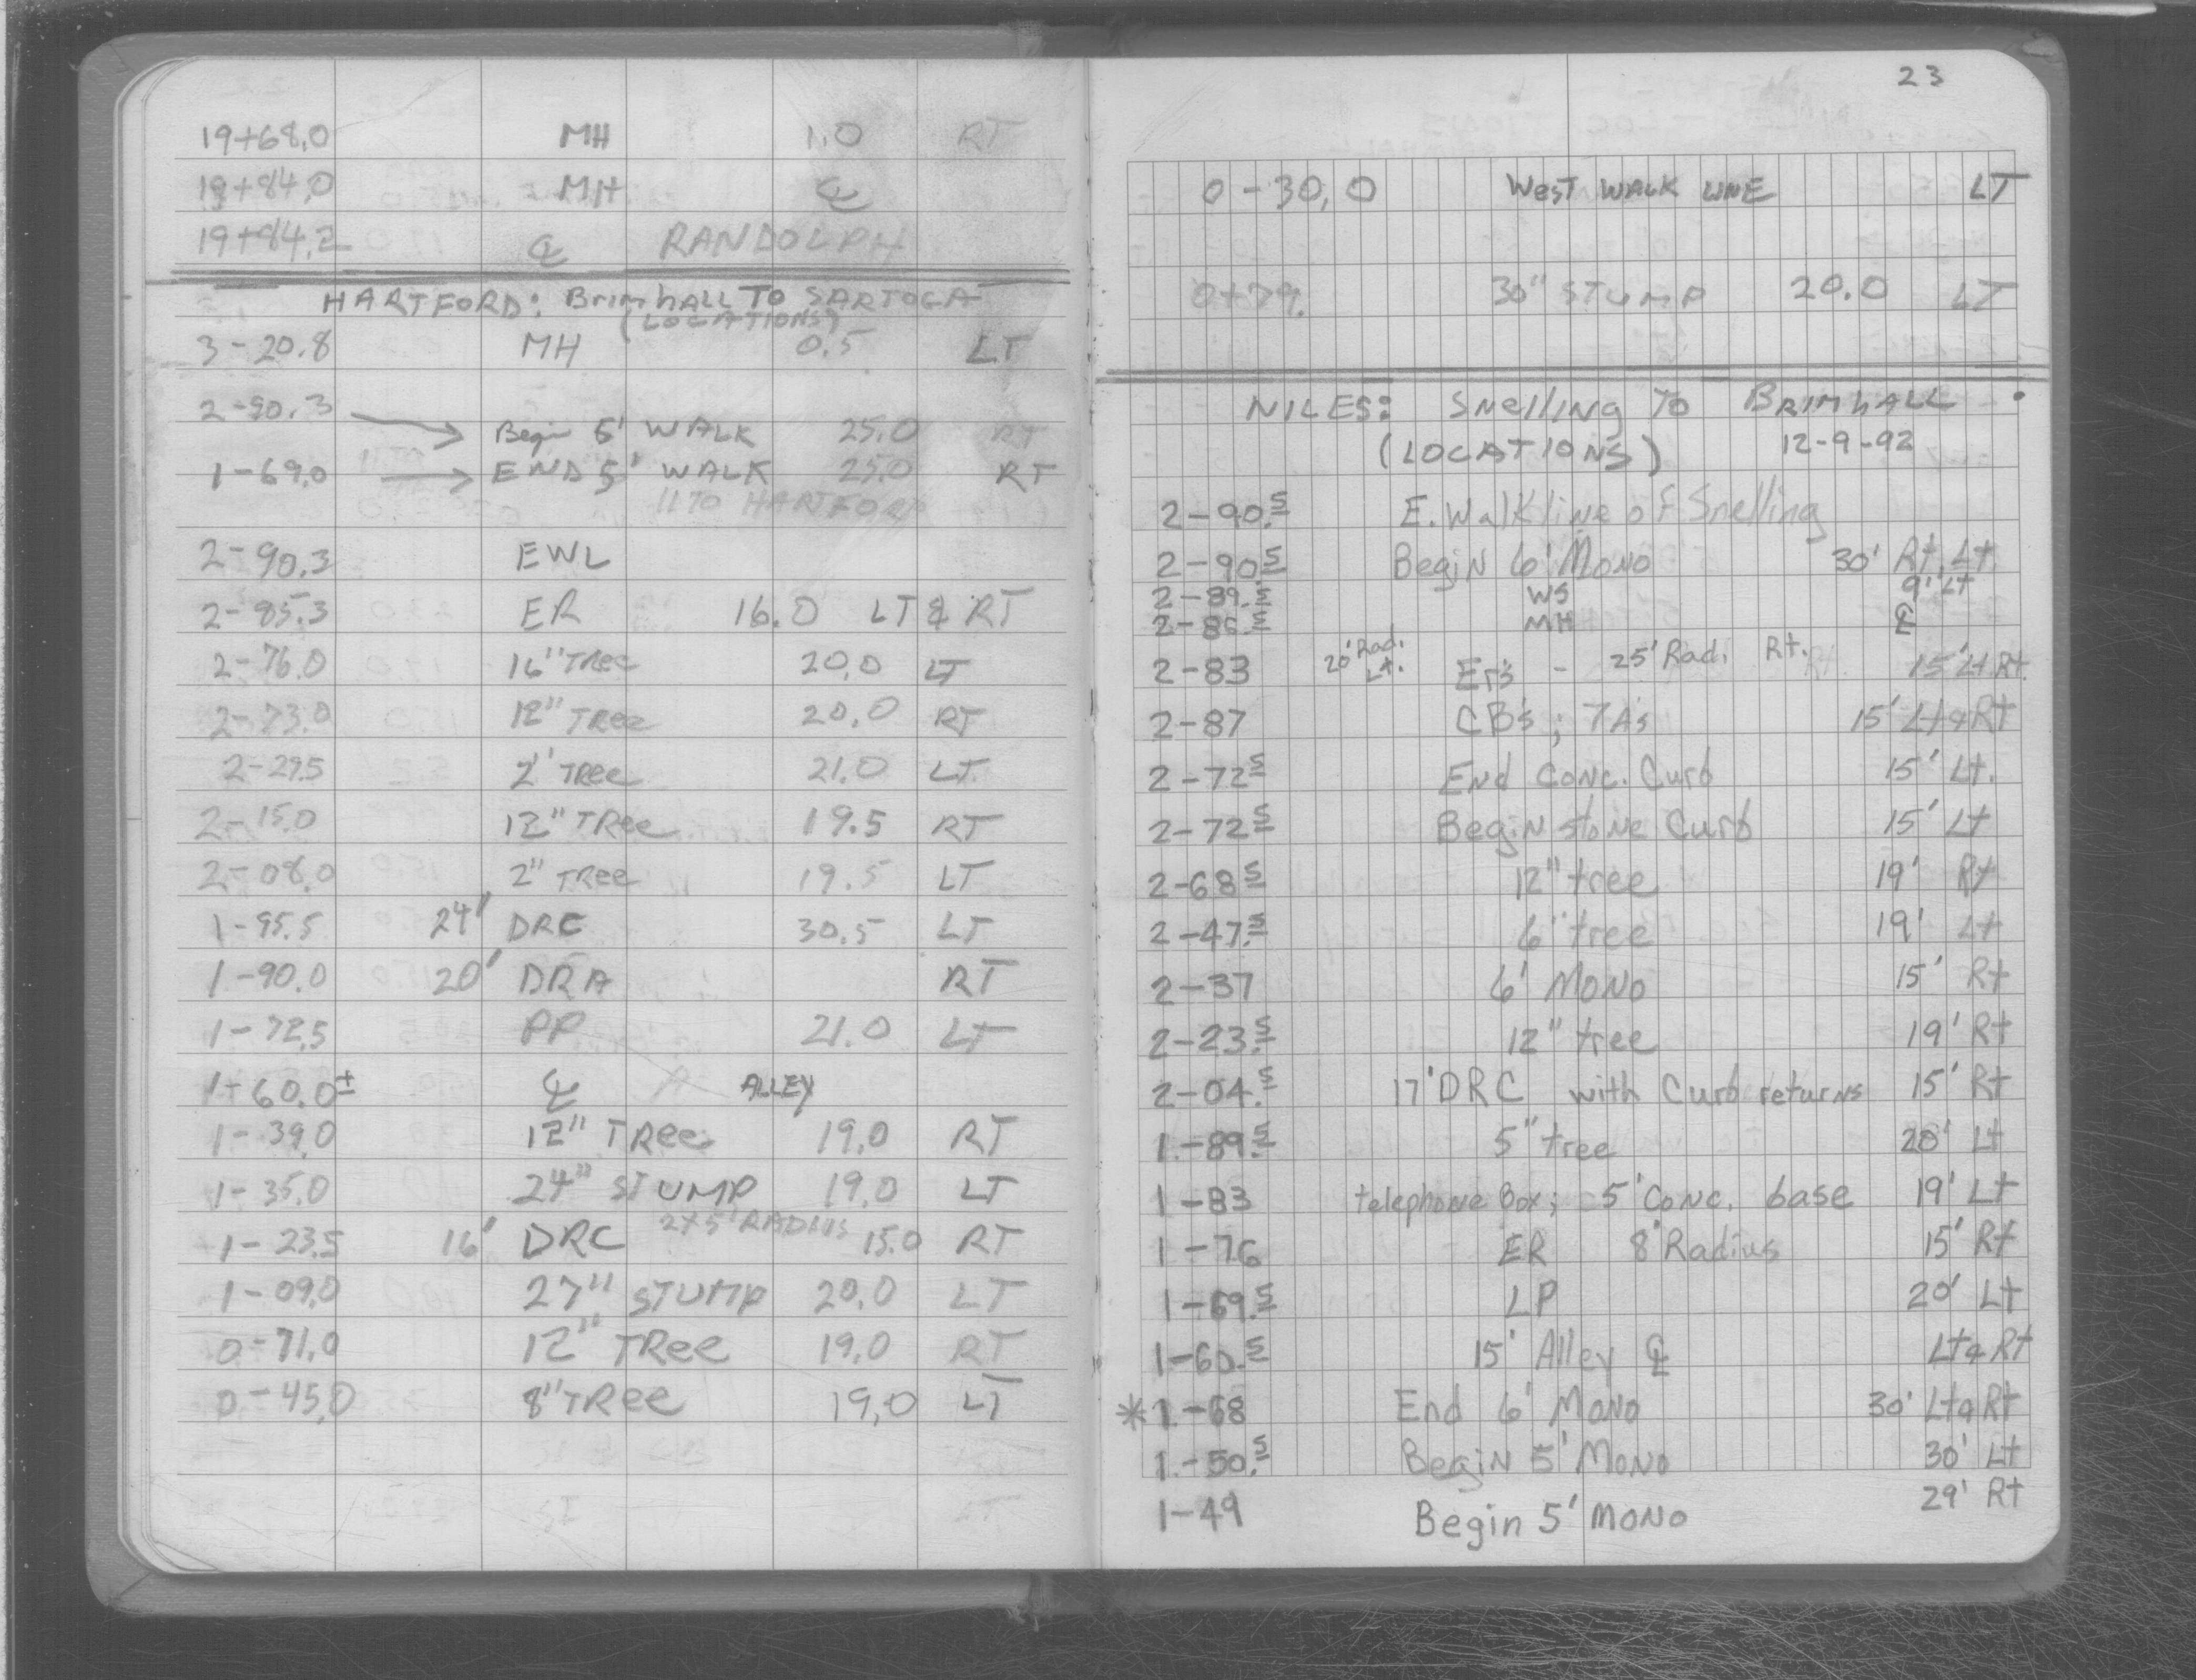 19+68.0 MH 1.0 RT
19+84.0 MH ℄
19+84.2 ℄ RANDOLPH
HARTFORD: BrimhALL TO SARTOGA
(LOCATIONS)
3-20.8 MH 0.5 LT
2-90.3
Begin 5' WALK 25.0 RT
1-69.0 END 5' WALK 25.0 RT
1170 HARTFORD
2-90.3 EWL
2-85.3 ER 16.0 LT & RT
2-76.0 16" Tree 20.0 LT
2-73.0 12" Tree 20.0 RT
2-29.5 2' Tree 21.0 LT
2-15.0 12" Tree 19.5 RT
2-08.0 2" Tree 19.5 LT
1-95.5 24' DRC 30.5 LT
1-90.0 20' DRA RT
1-72.5 PP 21.0 LT
1+60.0± ℄ ALLEY
1-39.0 12" TRee 19.0 RT
1-35.0 24" STUMP 19.0 LT
2x5' RADIUS
1-23.5 16' DRC 15.0 RT
1-09.0 27" STUMP 20.0 LT
0-71.0 12" TRee 19.0 RT
0-45.0 8" TRee 19.0 LT
23
0-30.0 West WALK LINE LT
0+79. 30" STUMP 20.0 LT
NILES: Snelling To BRIMhALL
(LOCATIONS) 12-9-92
2-90.5 E. Walkline of Snelling
2-90.5 Begin 6' Mono 30' Rt, Lt.
2-89.5 WS 9' Lt
2-86.5 MH ℄
2-83 20' Rad. Lt. Er's - 25' Rad. Rt. 15' Lt. Rt.
2-87 CB's; TA's 15' Lt & Rt
2-72.5 End Conc. Curb 15' Lt.
2-72.5 Begin stone Curb 15' Lt
2-68.5 12" tree 19' Rt
2-47.5 6" tree 19' Lt
2-37 6' Mono 15' Rt
2-23.5 12" tree 19' Rt
2-04.5 17' DRC with Curb returns 15' Rt
1-89.5 5" tree 20' Lt
1-83 telephone Box; 5' Conc. base 19' Lt
1-76 ER 8' Radius 15' Rt
1-69.5 LP 20' Lt
1-60.5 15' Alley ℄ Lt & Rt
*1-68 End 6' Mono 30' Lt & Rt
1-50.5 Begin 5' Mono 30' Lt
1-49 Begin 5' Mono 29' Rt